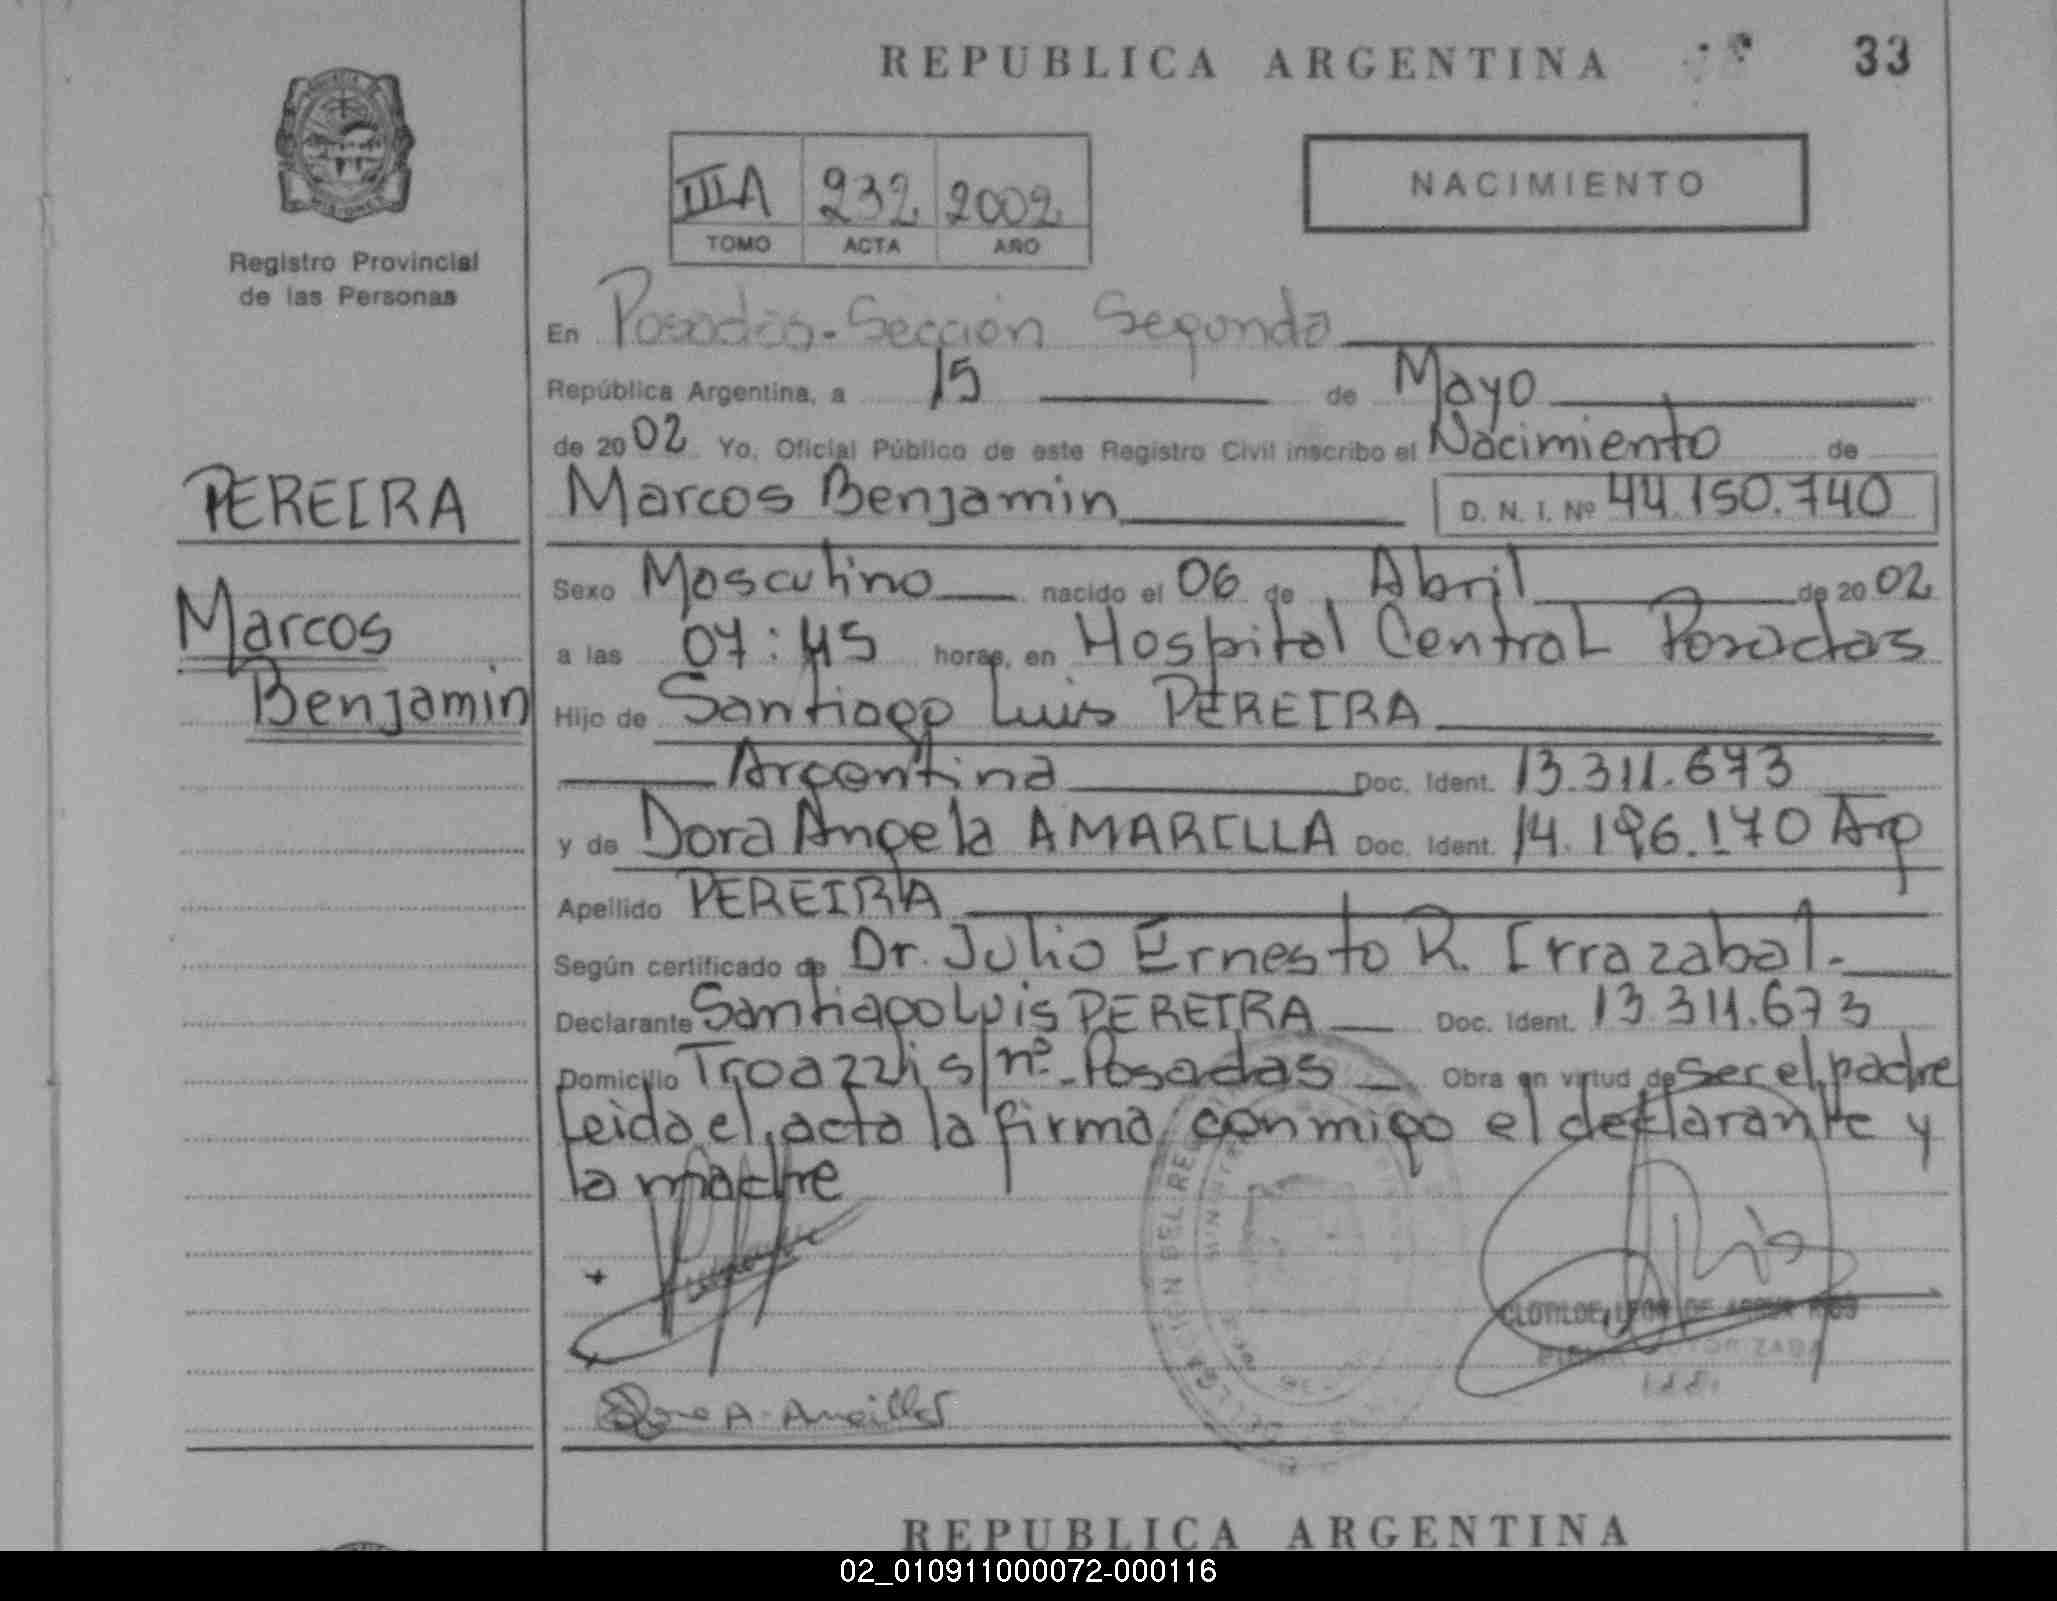 REPUBLICA ARGENTINA 33
IIIA 232 2002
TOMO ACTA AÑO
NACIMIENTO
Registro Provincial
de las Personas
PEREIRA
Marcos
Benjamin
En Posadas - Sección Segunda
República Argentina, a 15 de Mayo
de 2002 Yo, Oficial Público de este Registro Civil inscribo el Nacimiento de
Marcos Benjamin D. N. I. Nº 44.150.740
Sexo Masculino nacido el 06 de Abril de 2002
a las 07:45 horas, en Hospital Central Posadas
Hijo de Santiago Luis PEREIRA
Argentina Doc. Ident. 13.311.673
y de Dora Angela AMARILLA Doc. Ident. 14.196.170 Arg
Apellido PEREIRA
Según certificado de Dr. Julio Ernesto R. Irrazabal.
Declarante Santiago Luis PEREIRA Doc. Ident. 13.311.673
Domicilio s/nº - Posadas Obra en virtud de ser el padre
leida el acta la firma conmigo el declarante y
la madre
CLOTILDE
REPUBLICA ARGENTINA
02_010911000072-000116